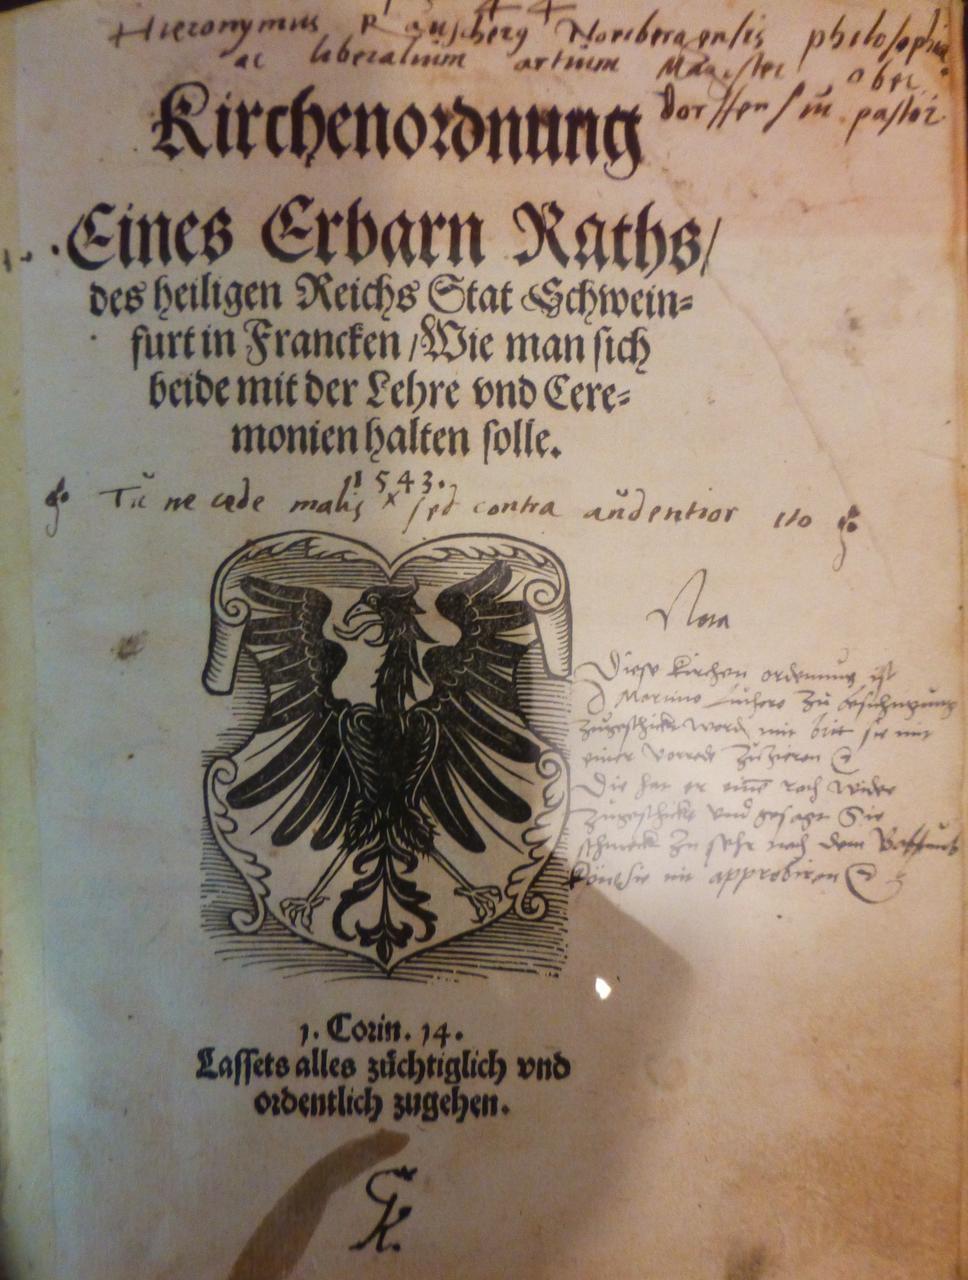 Hieronymus Noribergensis philosophiae
ac liberalium artium Magister ober
dorffensium pastor
Kirchenordnung
Eines Erbarn Raths/
des heiligen Reichs Stat Schwein=
furt in Francken / Wie man sich
beide mit der Lehre vnd Cere=
monien halten solle.
1543.
Tu ne cede malis sed contra audentior ito
Nota
Diese Kirchen ordenung ist
D Martino Luthero zu besichtigung
zugeschickt word mit bitt sie mit
einer Vorrede zu zieren
Die hat er wider
zugeschickt vnd gesagt Sie
schmeck zu sehr nach dem
könt sie nit approbiren
1. Corin. 14.
Lassets alles züchtiglich vnd
ordentlich zugehen.